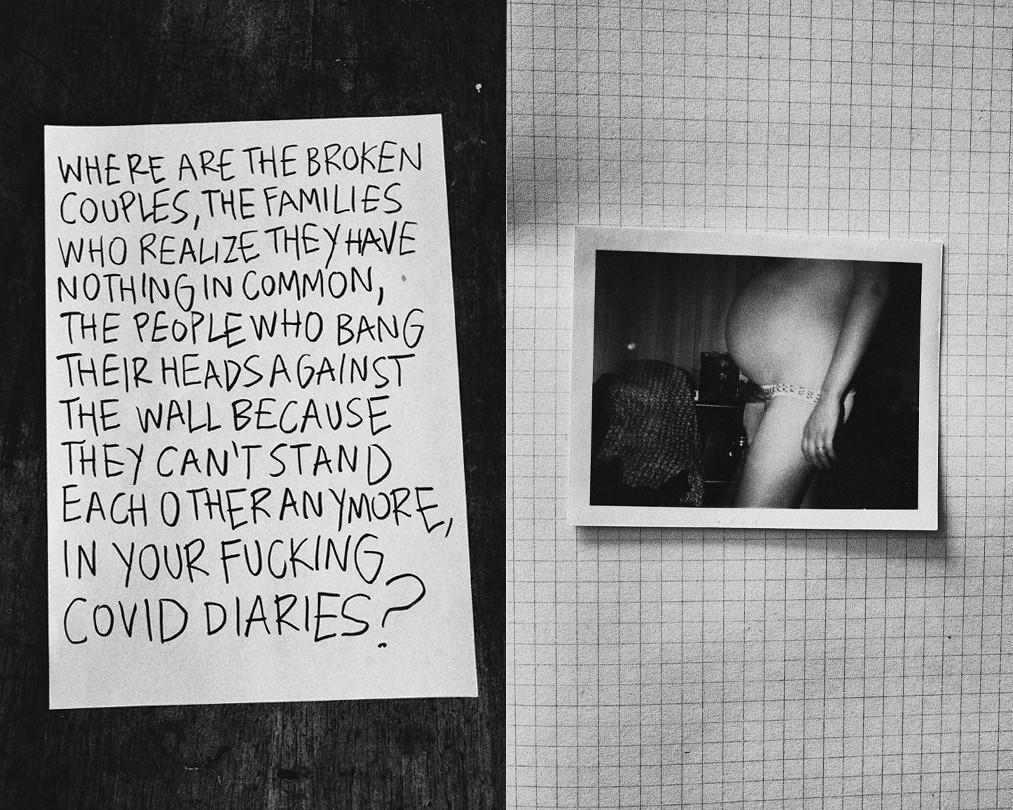 WHERE ARE THE BROKEN
COUPLES, THE FAMILIES
WHO REALIZE THEY HAVE
NOTHING IN COMMON,
THE PEOPLE WHO BANG
THEIR HEADS AGAINST
THE WALL BECAUSE
THEY CAN'T STAND
EACH OTHER ANYMORE,
IN YOUR FUCKING
COVID DIARIES?